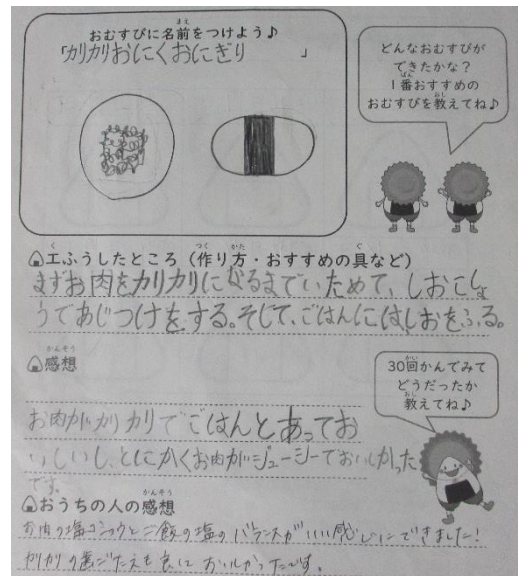 おむすびに名前をつけよう♪
「カリカリおにくおにぎり」
どんなおむすびが
できたかな?
1番おすすめの
おむすびを教えてね♪
工ふうしたところ(作り方・おすすめの具など)
まずお肉をカリカリになるまでいためて、しおこしょ
うであじつけをする。そして、ごはんにはしおをふる。
感想
30回かんでみて
どうだったか
教えてね♪
お肉がカリカリでごはんとあってお
いしいし、とにかくお肉がジューシーでおいしかった
です。
おうちの人の感想
お肉の塩コショウとご飯の塩のバランスがいい感じにできました!
カリカリの歯ごたえも良くておいしかったです。